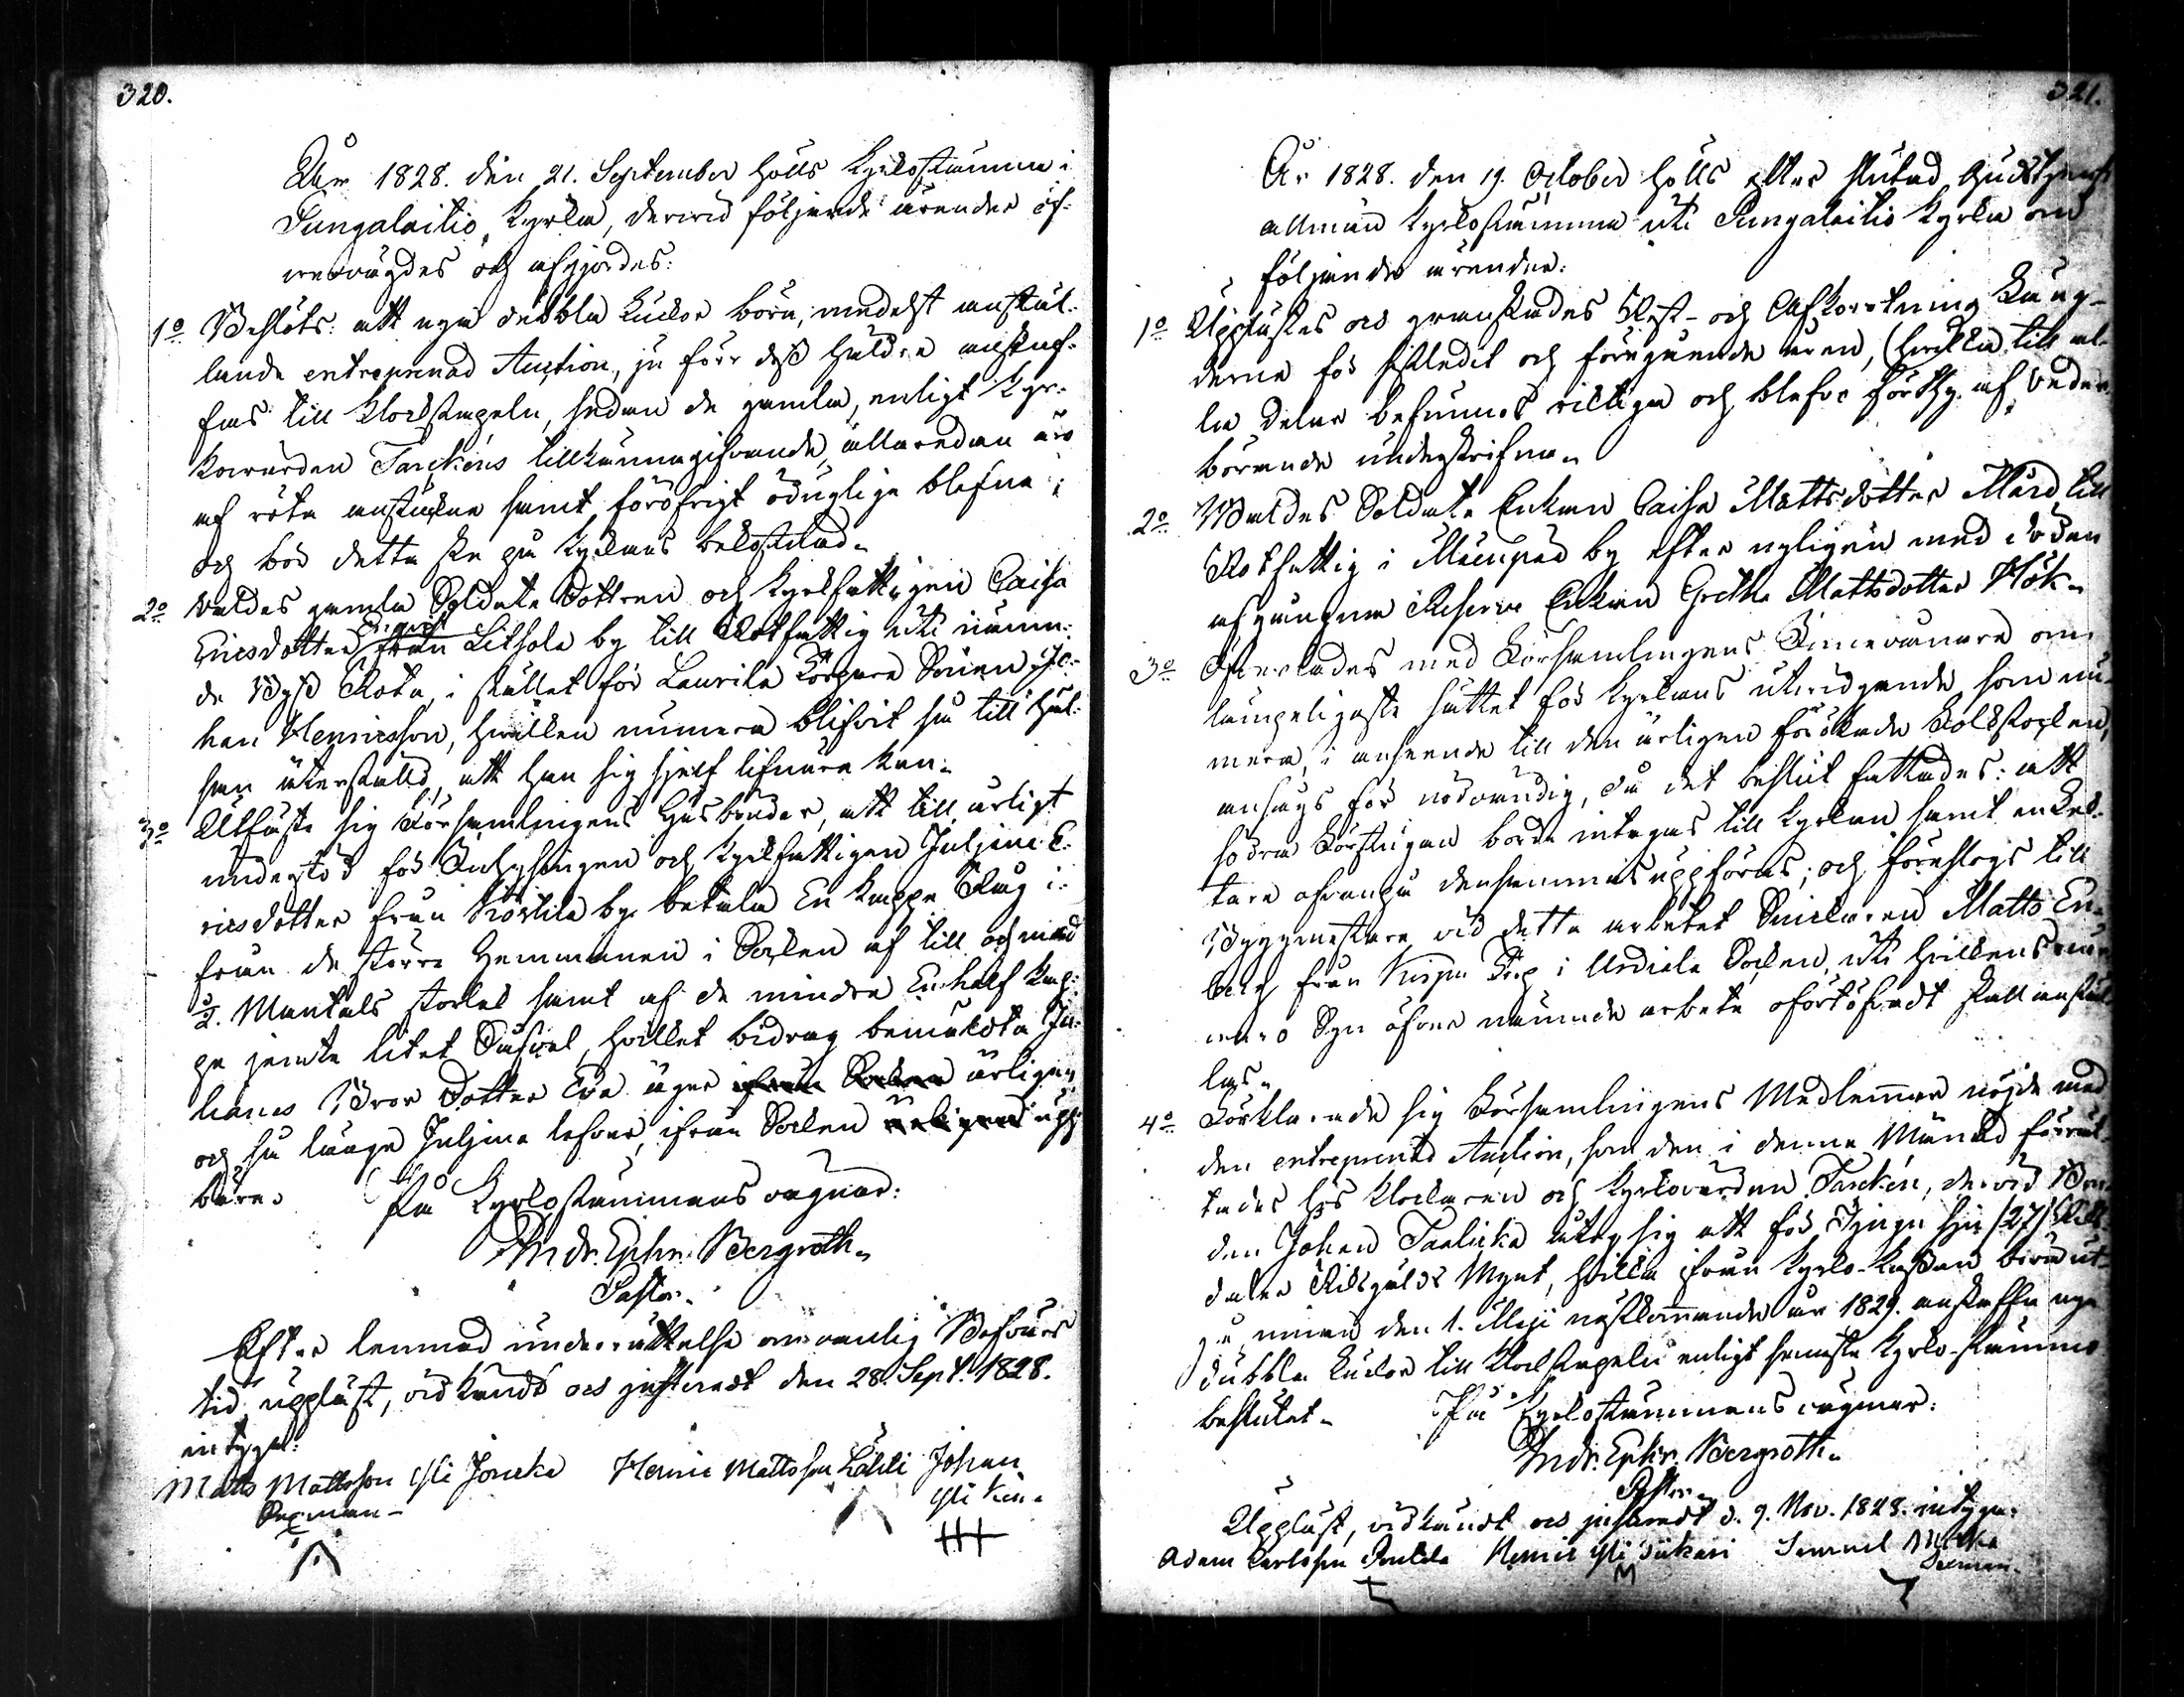 320.
År 1828. den 21. September hölls Kyrkostämma i
Pungalaitio Kyrka, dervid följande ärender öf-
vervägdes och afgjordes:
1o Beslöts: att nya dubbla Luckor böra, medelst anstäl-
lande entreprenad Auction, ju förr dess heldre anskaf-
fas till Klockstapeln, sedan de gamla, enligt Kyr-
kovärden Tarckéns tillkännagifvande, allaredan äro
af röta anstuckna samt föröfrigt oduglige blefne;
och bör detta ske på Kyrkans bekostnad.
2o Valdes gamla Soldate Dottren och Kyrkfattigen Caisa
Ericsdotter från Lithola by till Rotfattig uti nämn-
de Byss Rota, i stället för Laurila Torpare Sonen Jo-
han Henricsson, hvilken numera blifvit så till häl-
san återställd, att han sig sjelf lifnära kan.
3o Utfäste sig Församlingens Husbönder, att till årligt
understöd för Inhysingen och Kyrkfattigen Juliana E-
ricsdotter från by betala En Kappe Råg i-
från de större Hemmanen i Socken af till och med
1/2. Mantals storlek samt af de mindre En half Kap-
pe jemte litet Sufvel, hvilket bidrag bemäldta Ju-
lianas Bror Dotter Eva äger ifrån Socken årligen
och så länge Juliana lefver, ifrån Socken årligen upp-
bära. På Kyrkostämmans vägnar:
Andr. Ephr. Bergroth.
Pastor.
Efter lemnad underrättelse om vanlig Besvärs
tid, uppläst, vidkändt och justeradt den 28. Sept. 1828.
intyga:
Matts Mattsson Yli Jouska Henric Mattsson Lähli Johan
Sexman Yli
321.
År 1828. den 19. October hölls efter slutad Gudstjenst
allmän Kyrkostämma uti Pungalaitio Kyrka om
följande ärender:
1o Upplästes och granskades Rest- och Afkortning Läng-
derne för sistledit och föregående åren, (hvilka till al-
la delar befunnos riktiga och blefvo förthy af Veder-
börande underskrifne.
2o Valdes Soldate Enkan Caisa Mattsdotter Mård till
Rotfattig i by efter nyligen med döden
afgångna Reserve Enkan Gretha Mattsdotter Hök.
3o Öfverlades med Församlingens Innevånare om
lämpeligaste sättet för Kyrkans utvidgande, som nu-
mera, i anseende till den årligen förökade Folkstocken,
ansågs för nödvändig, då det beslut fattades: att
södra Förstugan borde intagas till Kyrkan samt en Lek-
tare ofvanpå densamma uppföras; och föreslogs till
Byggmästare vid detta arbetet Snickaren Matts En-
berg från Torp i Urdiala Socken, uti hvilkens när-
varo Syn öfver nämnde arbete ofördröjeligt skall anstäl-
las.
4o Förklarade sig Församlingens Medlemmar nöjde med
den entreprenad Auction, som den i denna Månad förrät-
tades hos Klockaren och Kyrkovärden Tarckén, dervid Bon-
den Johan Taalicka åtog sig att för Tjugu sju (27) Riks-
daler Riksgälds Mynt, hvilka ifrån Kyrko-Kassan böra ut-
gå, innan den 1. Maji nästkommande år 1829. anskaffa nya
dubbla Luckor till Klockstapeln enligt senaste Kyrko-stämmo
beslutet. På Kyrkostämmans vägnar:
Andr. Ephr. Bergroth.
Pastor.
Uppläst, vidkändt och justeradt d. 9. Nov. 1828. intyga:
Adam Carlsson Henric Yli Samuel
Sexman.